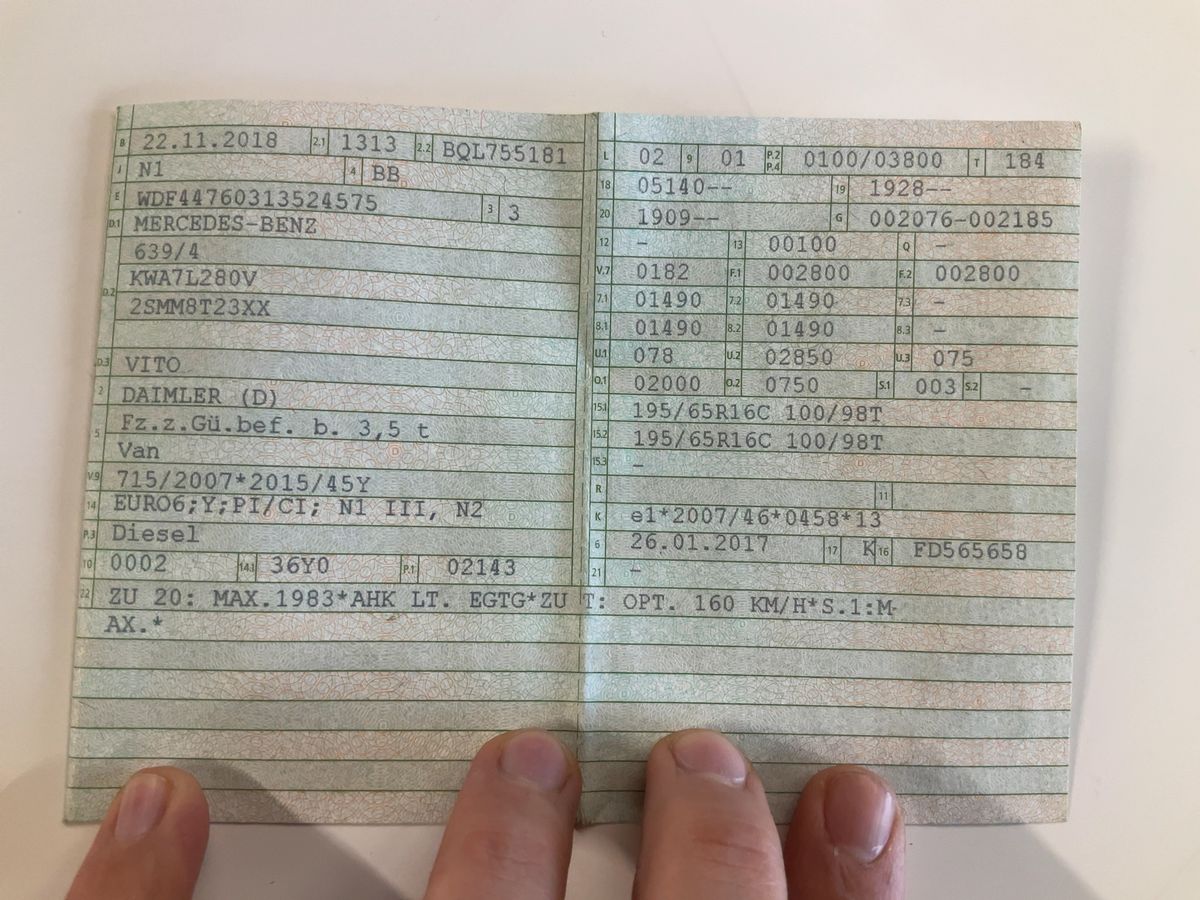 B 22.11.2018 2.1 1313 2.2 BQL755181
J N1 4 BB
E WDF44760313524575 3 3
D.1 MERCEDES-BENZ
639/4
D.2 KWA7L280V
2SMM8T23XX
D.3 VITO
2 DAIMLER (D)
5 Fz.z.Gü.bef. b. 3,5 t
Van
V.9 715/2007*2015/45Y
14 EURO6;Y;PI/CI; N1 III, N2
P.3 Diesel
10 0002 14.1 36Y0 P.1 02143
L 02 9 01 P.2 P.4 0100/03800 T 184
18 05140-- 19 1928--
20 1909-- G 002076-002185
12 - 13 00100 Q -
V.7 0182 F.1 002800 F.2 002800
7.1 01490 7.2 01490 7.3 -
8.1 01490 8.2 01490 8.3 -
U.1 078 U.2 02850 U.3 075
O.1 02000 O.2 0750 S.1 003 S.2 -
15.1 195/65R16C 100/98T
15.2 195/65R16C 100/98T
15.3 -
R 11
K e1*2007/46*0458*13
6 26.01.2017 17 K 16 FD565658
21 -
22 ZU 20: MAX.1983*AHK LT. EGTG*ZU T: OPT. 160 KM/H*S.1:M-
AX.*